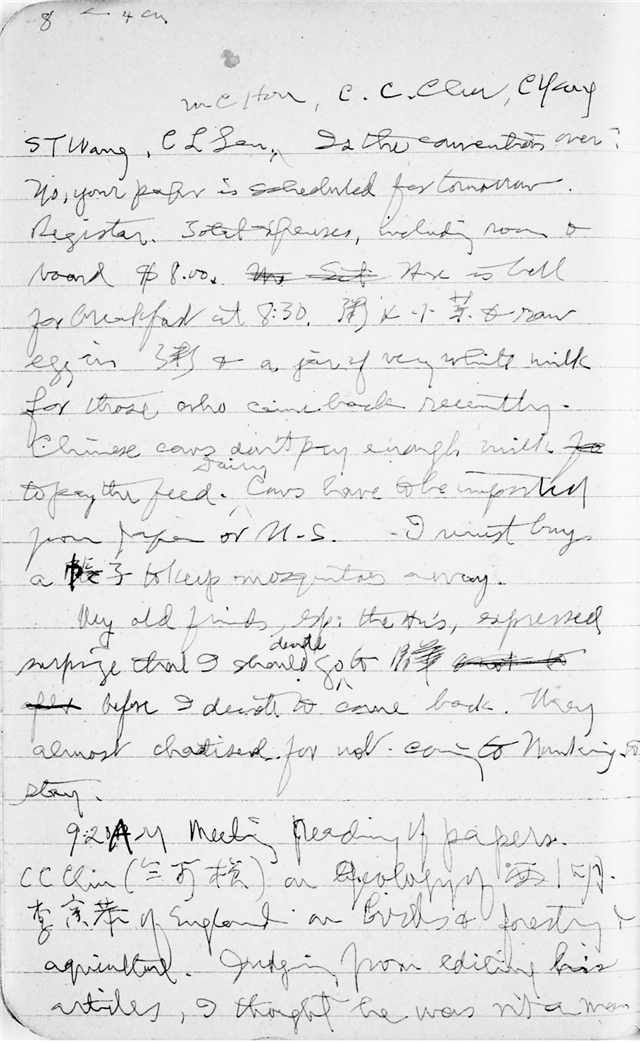 8
C. C. Chu, C Yang
ST Wang, C L Sen, Is the convention over?
No, your paper is scheduled for tomorrow.
Register. Total expenses, including room &
board $8.00. is bell
for breakfast at 8:30. 粥 小菜 & raw
egg in 粥 & a jar of very white milk
for those who came back recently.
Chinese cows don't pay enough milk
to pay the feed. Dairy Cows have to be imported
from Japan or U.S. - I must buy
a 帳子 to keep mosquitoes away.
My old friends, esp. the Hu's, expressed
surprize that I should decide go to
before I decide to come back. They
almost chastised for not coming to Nanking to
stay.
9:20 AM Meeting Reading of papers.
CC Chiu on Geology of
of England on Birds & forestry &
agriculture. Judging from editing his
articles, I thought he was not a man